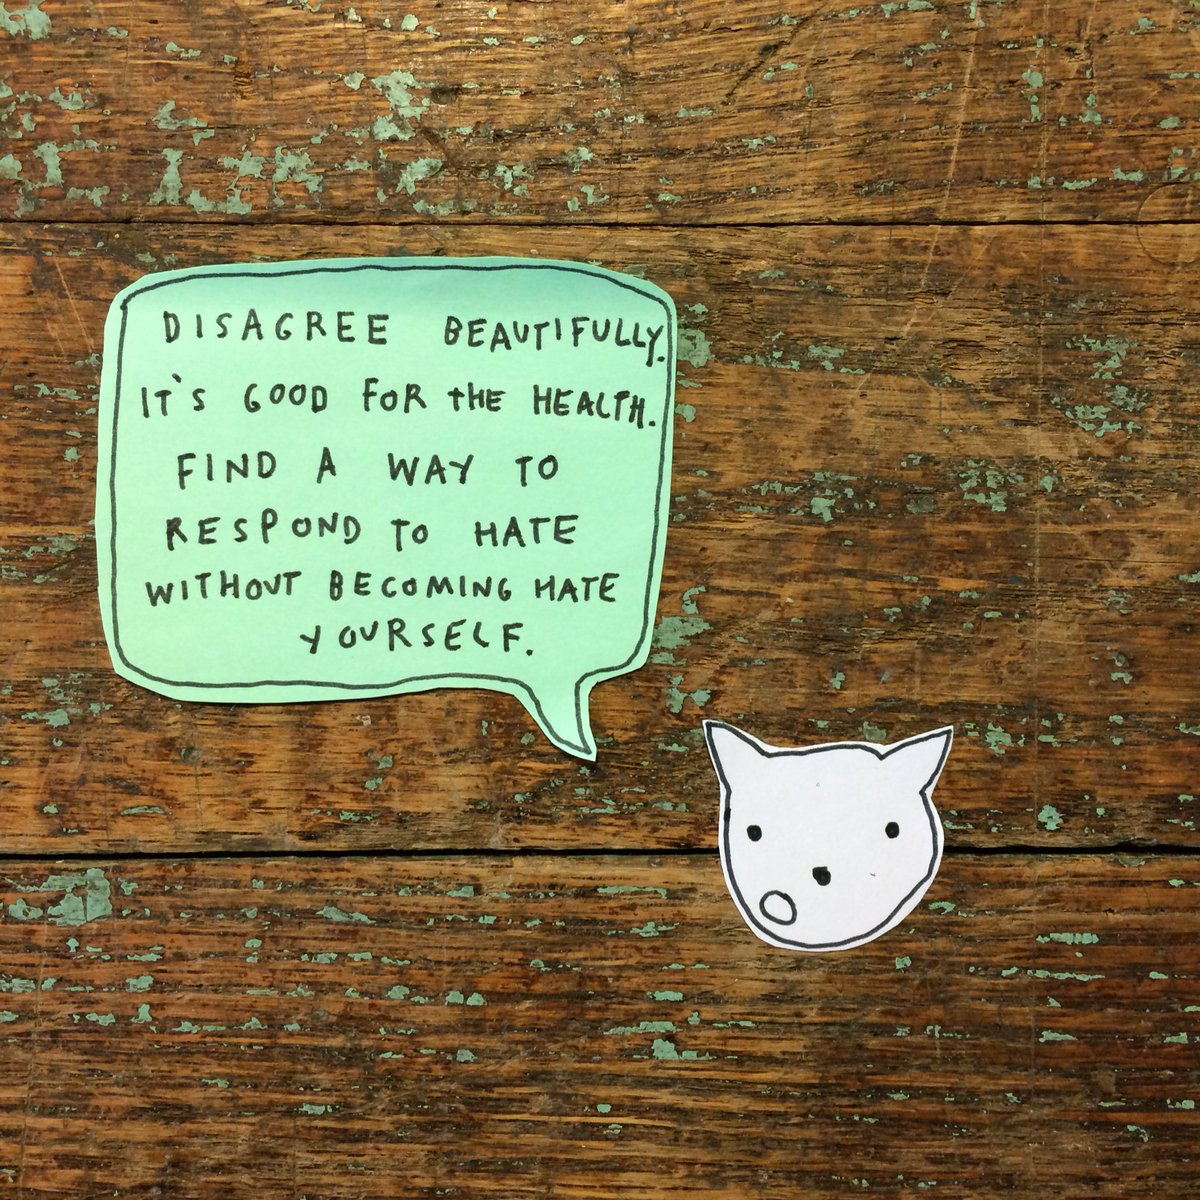 DISAGREE BEAUTIFULLY.
IT'S GOOD FOR tHE HEALTH.
FIND A WAY TO
RESPOND TO HATE
WITHOUT BECOMING HATE
YOURSELF.